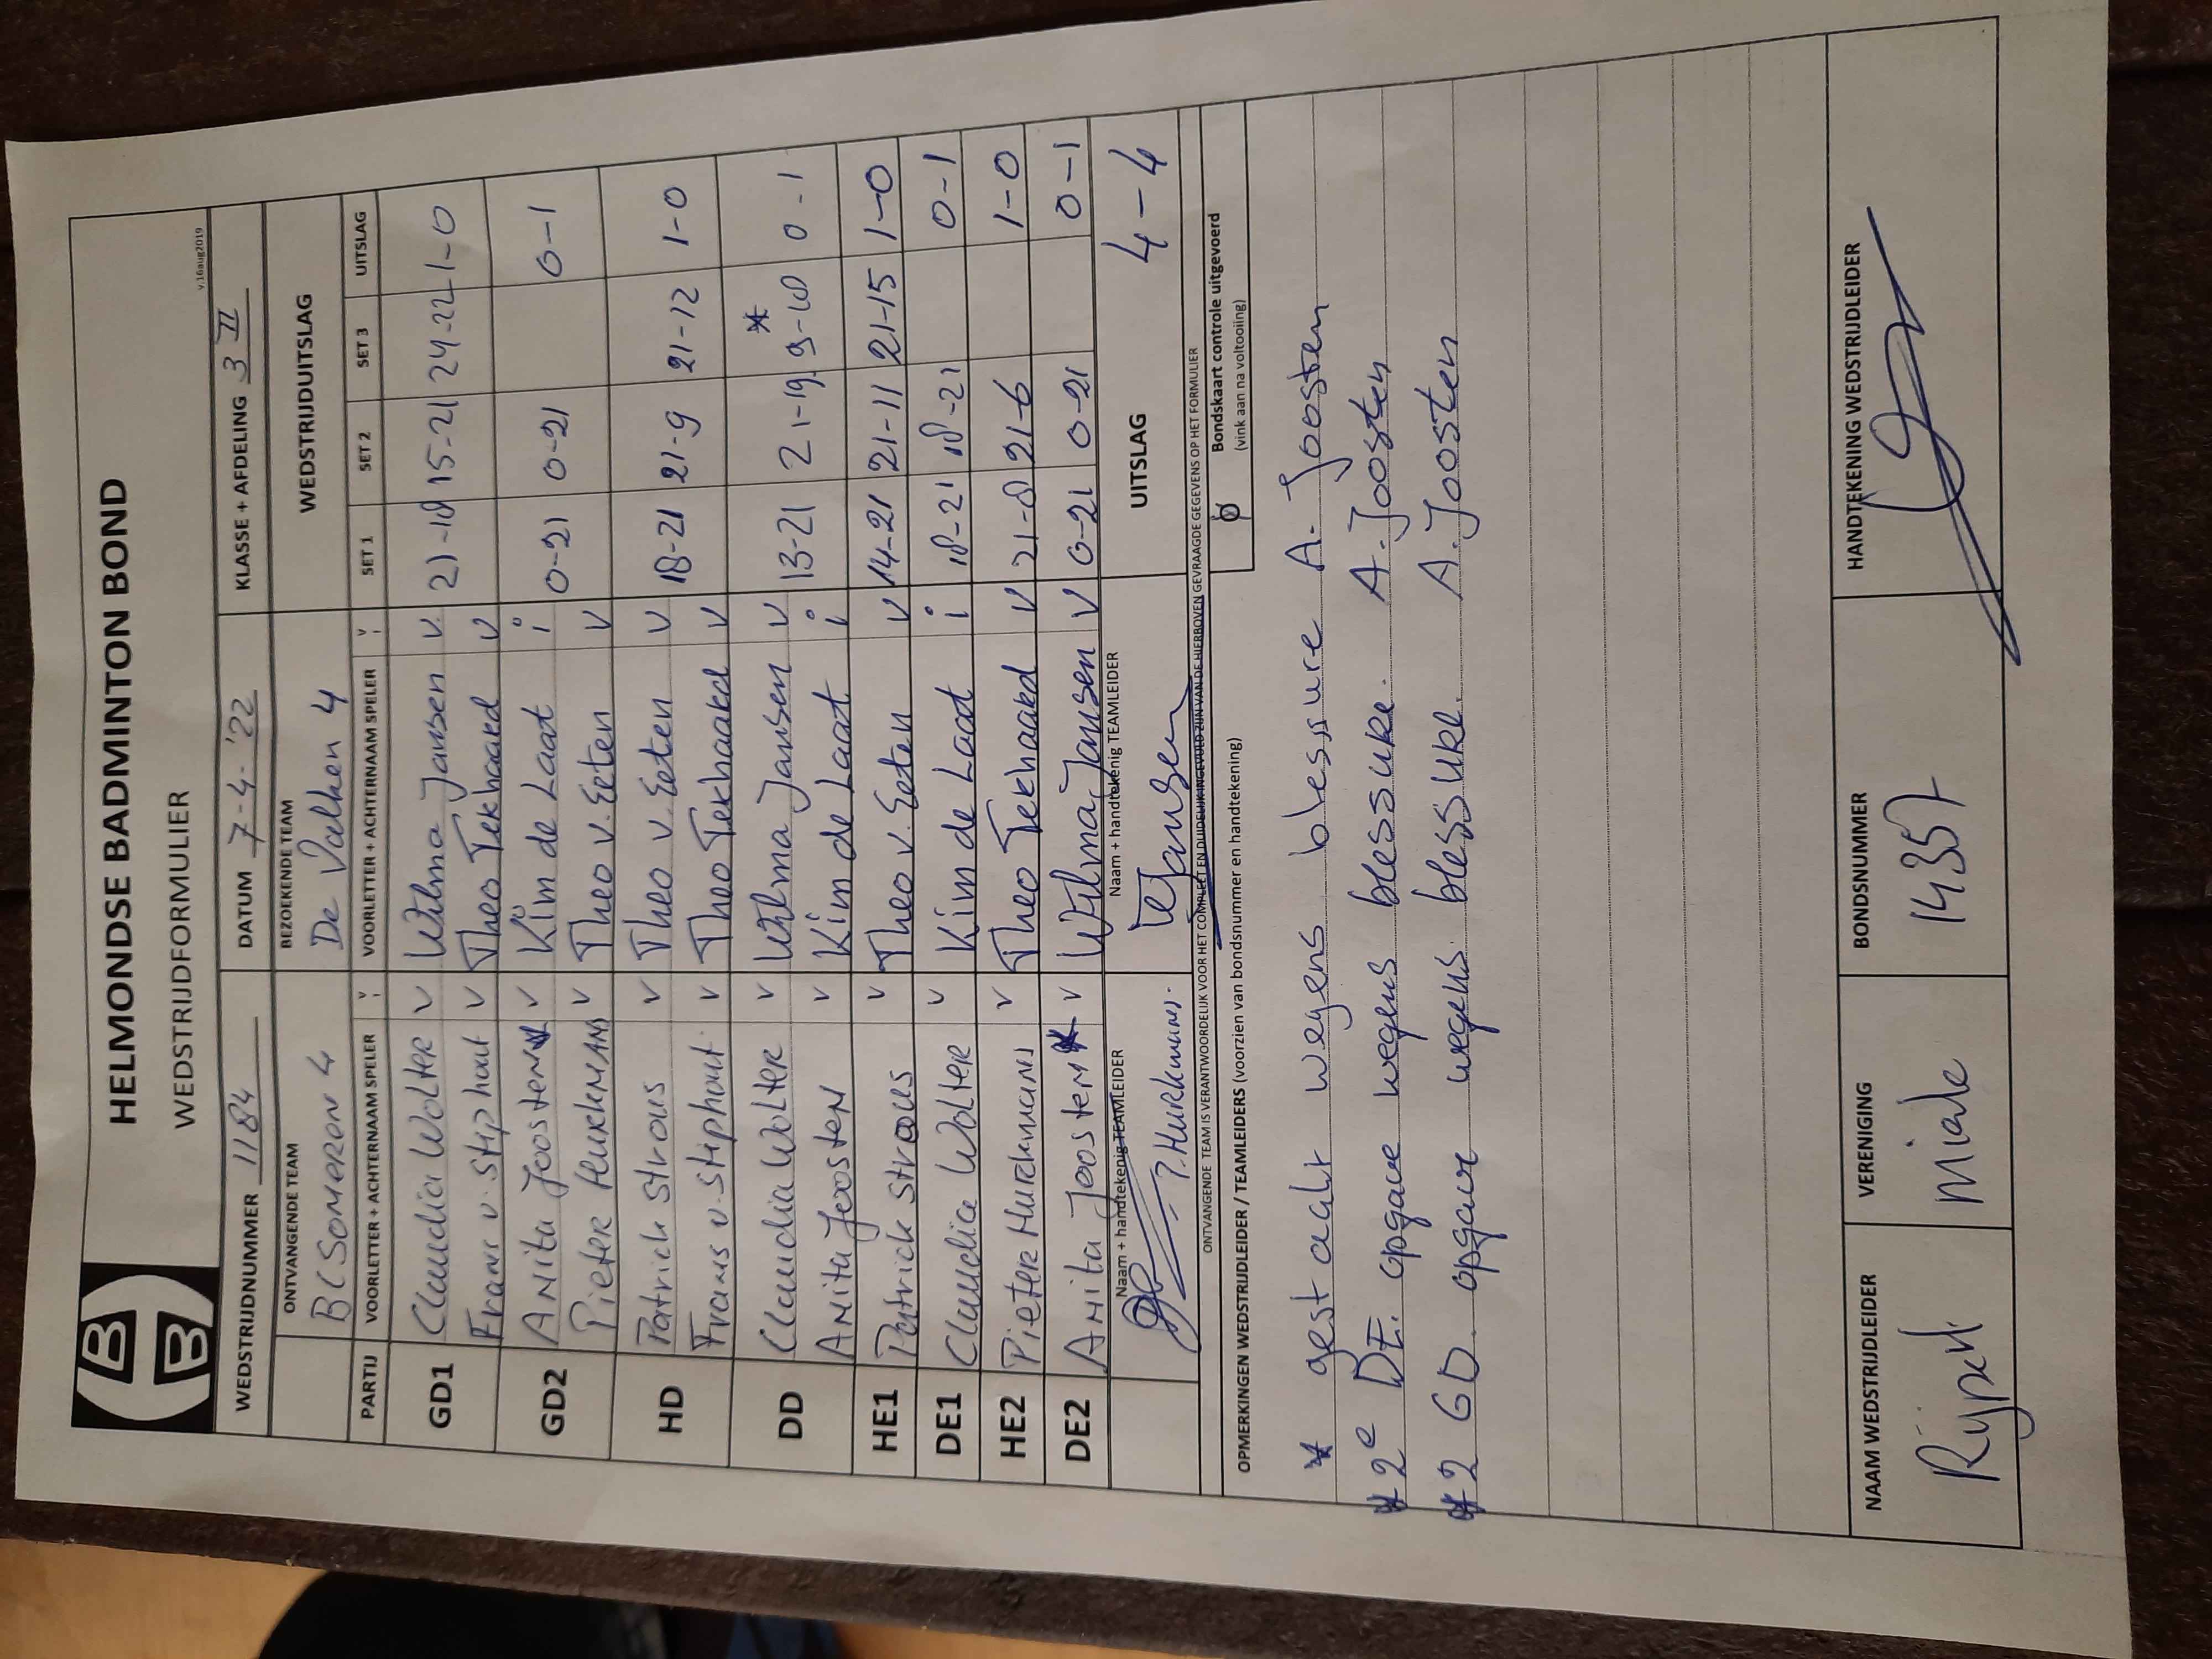 HELMONDSE BADMINTON BOND
WEDSTRIJDFORMULIER
v.16aug2019
WEDSTRIJDNUMMER 1184 DATUM 7-4-'22 KLASSE + AFDELING 3 II
ONTVANGENDE TEAM BEZOEKENDE TEAM WEDSTRIJDUITSLAG
BC SOMEREN 4 De Valken 4
PARTIJ VOORLETTER + ACHTERNAAM SPELER V i VOORLETTER + ACHTERNAAM SPELER V i SET 1 SET 2 SET 3 UITSLAG
GD1 Claudia Wolter v Wilma Jansen v 21-18 15-21 24-22 1-0
Frans v. Stiphout v Theo Tekhaard v
GD2 Anita Joosten * v Kim de Laat i 0-21 0-21 0-1
Pieter Hurkmans v Theo v. Eeten v
HD Patrick Strous v Theo v. Eeten v 18-21 21-9 21-12 1-0
Frans v. Stiphout v Theo Tekhaard v
DD Claudia Wolter v Wilma Jansen v 13-21 21-19 9-10 * 0-1
Anita Joosten v Kim de Laat i
HE1 Patrick Strous v Theo v. Eeten v 14-21 21-11 21-15 1-0
DE1 Claudia Wolter v Kim de Laat i 18-21 18-21 0-1
HE2 Pieter Hurkmans v Theo Tekhaard v 21-8 21-6 1-0
DE2 Anita Joosten * v Wilma Jansen v 0-21 0-21 0-1
Naam + handtekenig TEAMLEIDER Naam + handtekenig TEAMLEIDER UITSLAG 4-4
P. Hurkmans. Jansen
ONTVANGENDE TEAM IS VERANTWOORDELIJK VOOR HET COMPLEET EN DUIDELIJK INGEVULD ZIJN VAN DE HIERBOVEN GEVRAAGDE GEGEVENS OP HET FORMULIER
OPMERKINGEN WEDSTRIJDLEIDER / TEAMLEIDERS (voorzien van bondsnummer en handtekening)
Bondskaart controle uitgevoerd
(vink aan na voltooiing)
* gestaakt wegens blessure A. Joosten
* 2e DE. opgave wegens blessure. A. Joosten
* 2 GD. opgave wegens blessure. A. Joosten
NAAM WEDSTRIJDLEIDER VERENIGING BONDSNUMMER HANDTEKENING WEDSTRIJDLEIDER
Mia de 14357